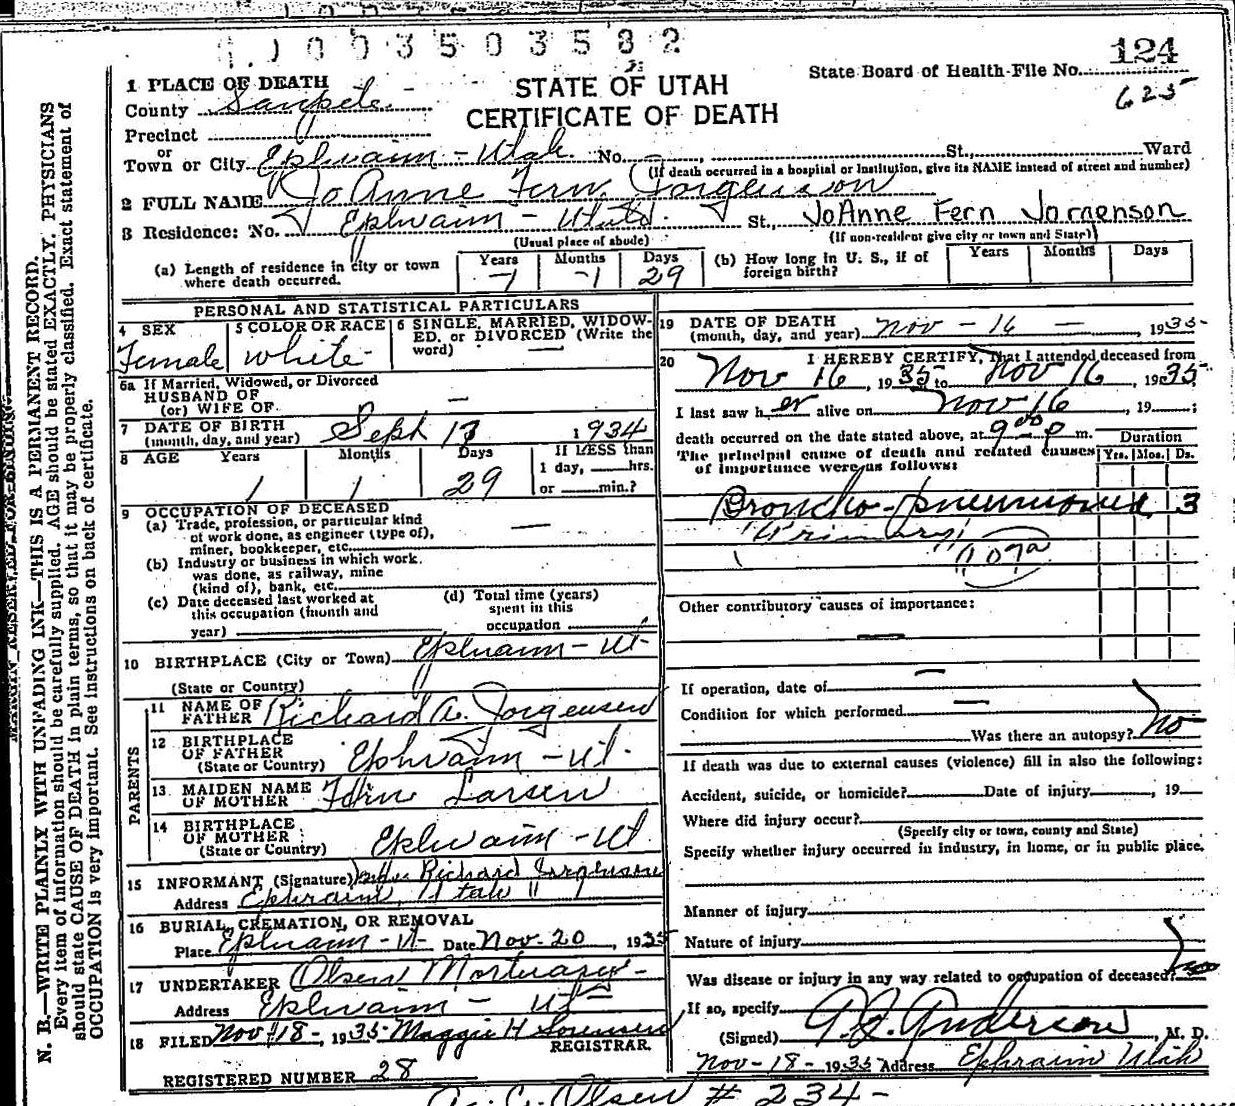 003503582
124
State Board of Health-File No.
625
STATE OF UTAH
CERTIFICATE OF DEATH
1 PLACE OF DEATH
County Sanpete
Precinct
or
Town or City Ephraim - Utah. No. St., Ward
(If death occurred in a hospital or institution, give its NAME instead of street and number)
2 FULL NAME JoAnne Fern Jorgenson
3 Residence: No. Ephraim - Utah. St., JoAnne Fern Jorgenson
(Usual place of abode) (If non-resident give city or town and State)
(a) Length of residence in city or town where death occurred. Years 1 Months 1 Days 29
(b) How long in U. S., if of foreign birth? Years Months Days
PERSONAL AND STATISTICAL PARTICULARS
4 SEX Female
5 COLOR OR RACE White
6 SINGLE, MARRIED, WIDOWED, or DIVORCED (Write the word) —
6a If Married, Widowed, or Divorced
HUSBAND OF
(or) WIFE OF —
7 DATE OF BIRTH
(month, day, and year) Sept 17 1934
8 AGE Years 1 Months 1 Days 29 If LESS than 1 day, hrs. or min.?
9 OCCUPATION OF DECEASED
(a) Trade, profession, or particular kind
of work done, as engineer (type of),
miner, bookkeeper, etc. —
(b) Industry or business in which work
was done, as railway, mine
(kind of), bank, etc.
(c) Date deceased last worked at
this occupation (month and
year)
(d) Total time (years)
spent in this
occupation
10 BIRTHPLACE (City or Town) Ephraim - Ut.
(State or Country)
PARENTS
11 NAME OF FATHER Richard A. Jorgensen
12 BIRTHPLACE OF FATHER
(State or Country) Ephraim - Ut.
13 MAIDEN NAME OF MOTHER Fern Larsen
14 BIRTHPLACE OF MOTHER
(State or Country) Ephraim - Ut
15 INFORMANT (Signature) Richard Jorgenson
Address Ephraim, Utah
16 BURIAL, CREMATION, OR REMOVAL
Place Ephraim - Ut Date Nov. 20, 1935
17 UNDERTAKER Olsen Mortuary -
Address Ephraim - Ut
18 FILED Nov 18 -, 1935 Maggie H Sorensen
REGISTRAR.
REGISTERED NUMBER 28
19 DATE OF DEATH
(month, day, and year) Nov - 16 -, 1935
20 I HEREBY CERTIFY, That I attended deceased from
Nov 16, 1935 to Nov 16, 1935
I last saw her alive on Nov 16, 19 ;
death occurred on the date stated above, at 9 00 P m.
The principal cause of death and related causes
of importance were as follows:
Duration
Yrs. Mos. Ds.
Broncho-pneumonia 3
(Primary)
107a
Other contributory causes of importance:
—
If operation, date of —
Condition for which performed —
Was there an autopsy? No
If death was due to external causes (violence) fill in also the following:
Accident, suicide, or homicide? Date of injury , 19
Where did injury occur?
(Specify city or town, county and State)
Specify whether injury occurred in industry, in home, or in public place.
Manner of injury
Nature of injury
Was disease or injury in any way related to occupation of deceased? no
If so, specify
(Signed) Anderson, M. D.
Nov - 18 - 1935 Address Ephraim Utah
Olsen # 234 -
N. B.—WRITE PLAINLY WITH UNFADING INK—THIS IS A PERMANENT RECORD.
Every item of information should be carefully supplied. AGE should be stated EXACTLY. PHYSICIANS
should state CAUSE OF DEATH in plain terms, so that it may be properly classified. Exact statement of
OCCUPATION is very important. See instructions on back of certificate.